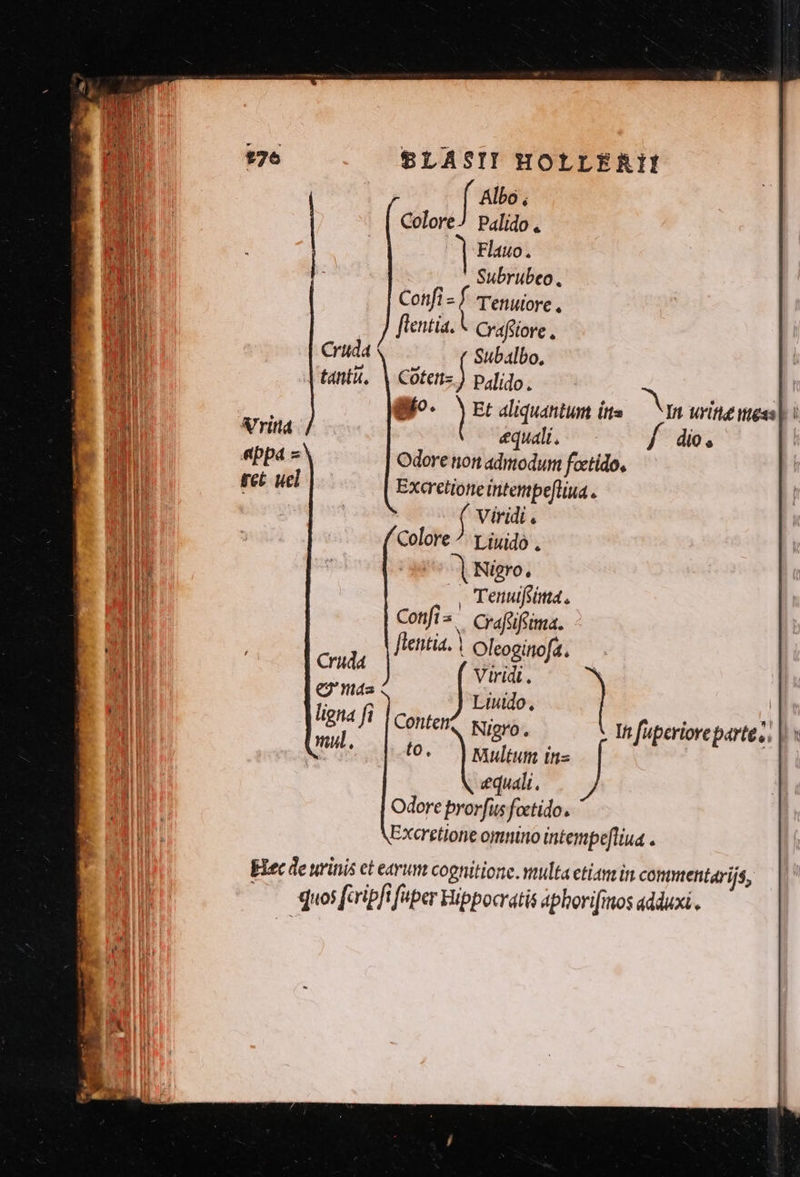 276 BLASII HOLLERII
Albo.
Colore Palido.
Flauo.
Subrubeo.
Confi= Tenuiore.
ſtentia. Craſsiore.
Cruda Subalbo.
tantũ. Cõten= Palido.
to. Et aliquantum in= In urinæ me=
Vrina æquali. dio.
appa = Odore non admodum fœtido.
ret uel Excretione intempeſtiua.
Viridi.
Colore Liuido.
Nigro.
Tenuiſsima.
Conſi= Craſsiſsima.
ſtentia. Oleoginoſa.
Cruda Viridi.
et ma= Liuido.
ligna ſi Conten= Nigro. In ſuperiore parte.
mul. to. Multum in=
æquali.
Odore prorſus fœtido.
Excretione omnino intempeſtiua.
Hæc de urinis et earum cognitione. multa etiam in commentarijs,
quos ſcripſi ſuper Hippocratis aphoriſmos adduxi.